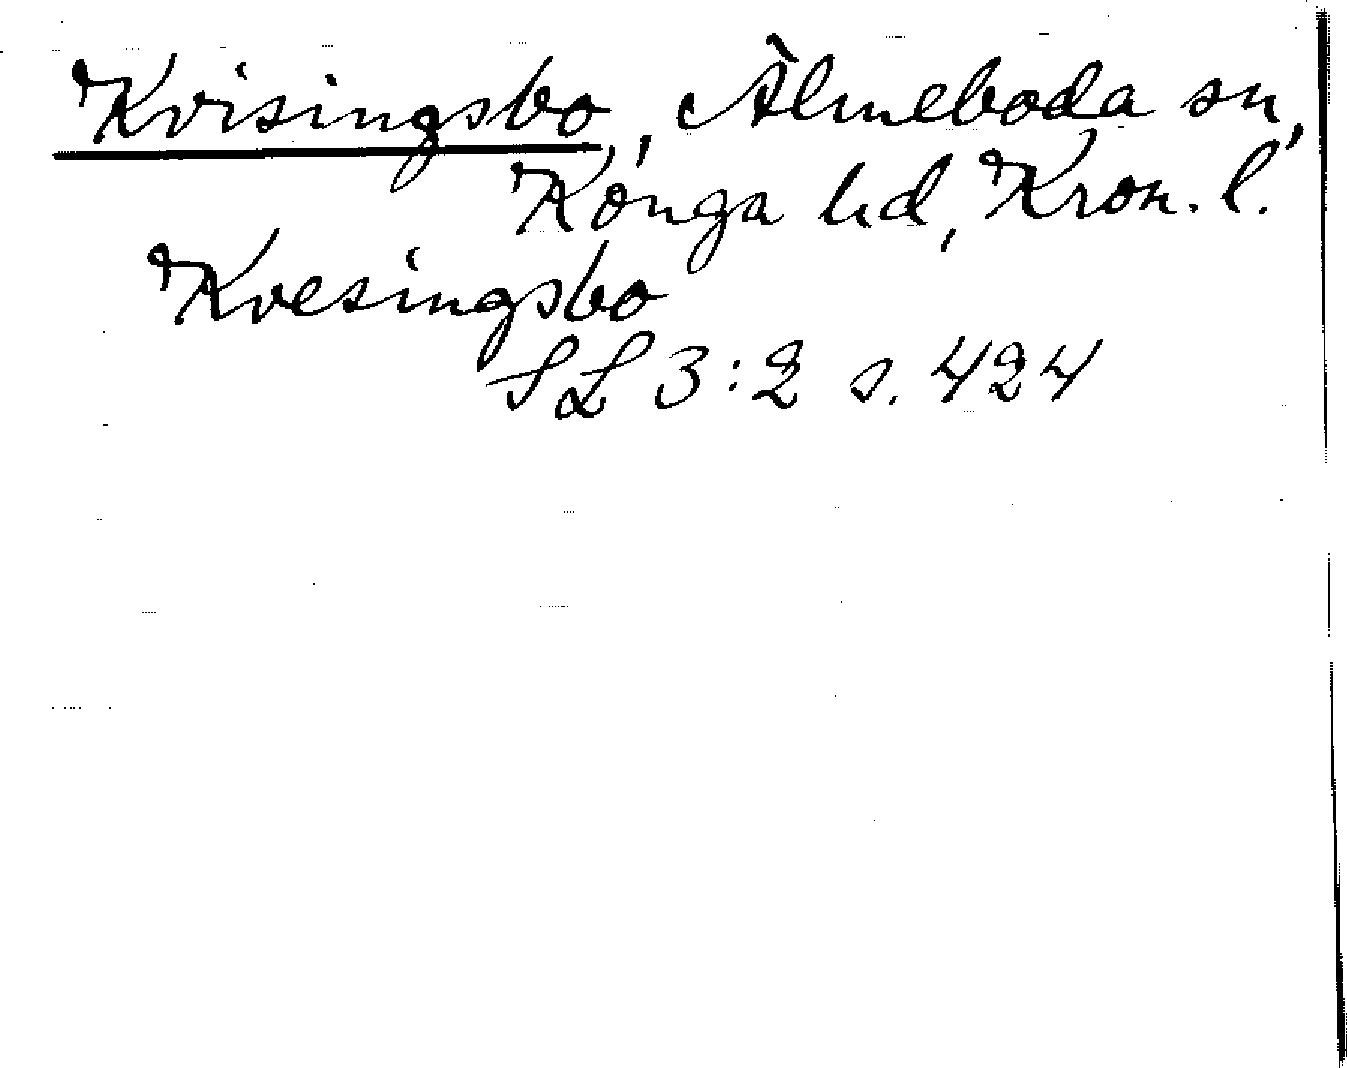 Kvisingsbo, Älmeboda sn,
Konga hd, Kron. l.
Kvesingsbo
SL 3:2 s. 424